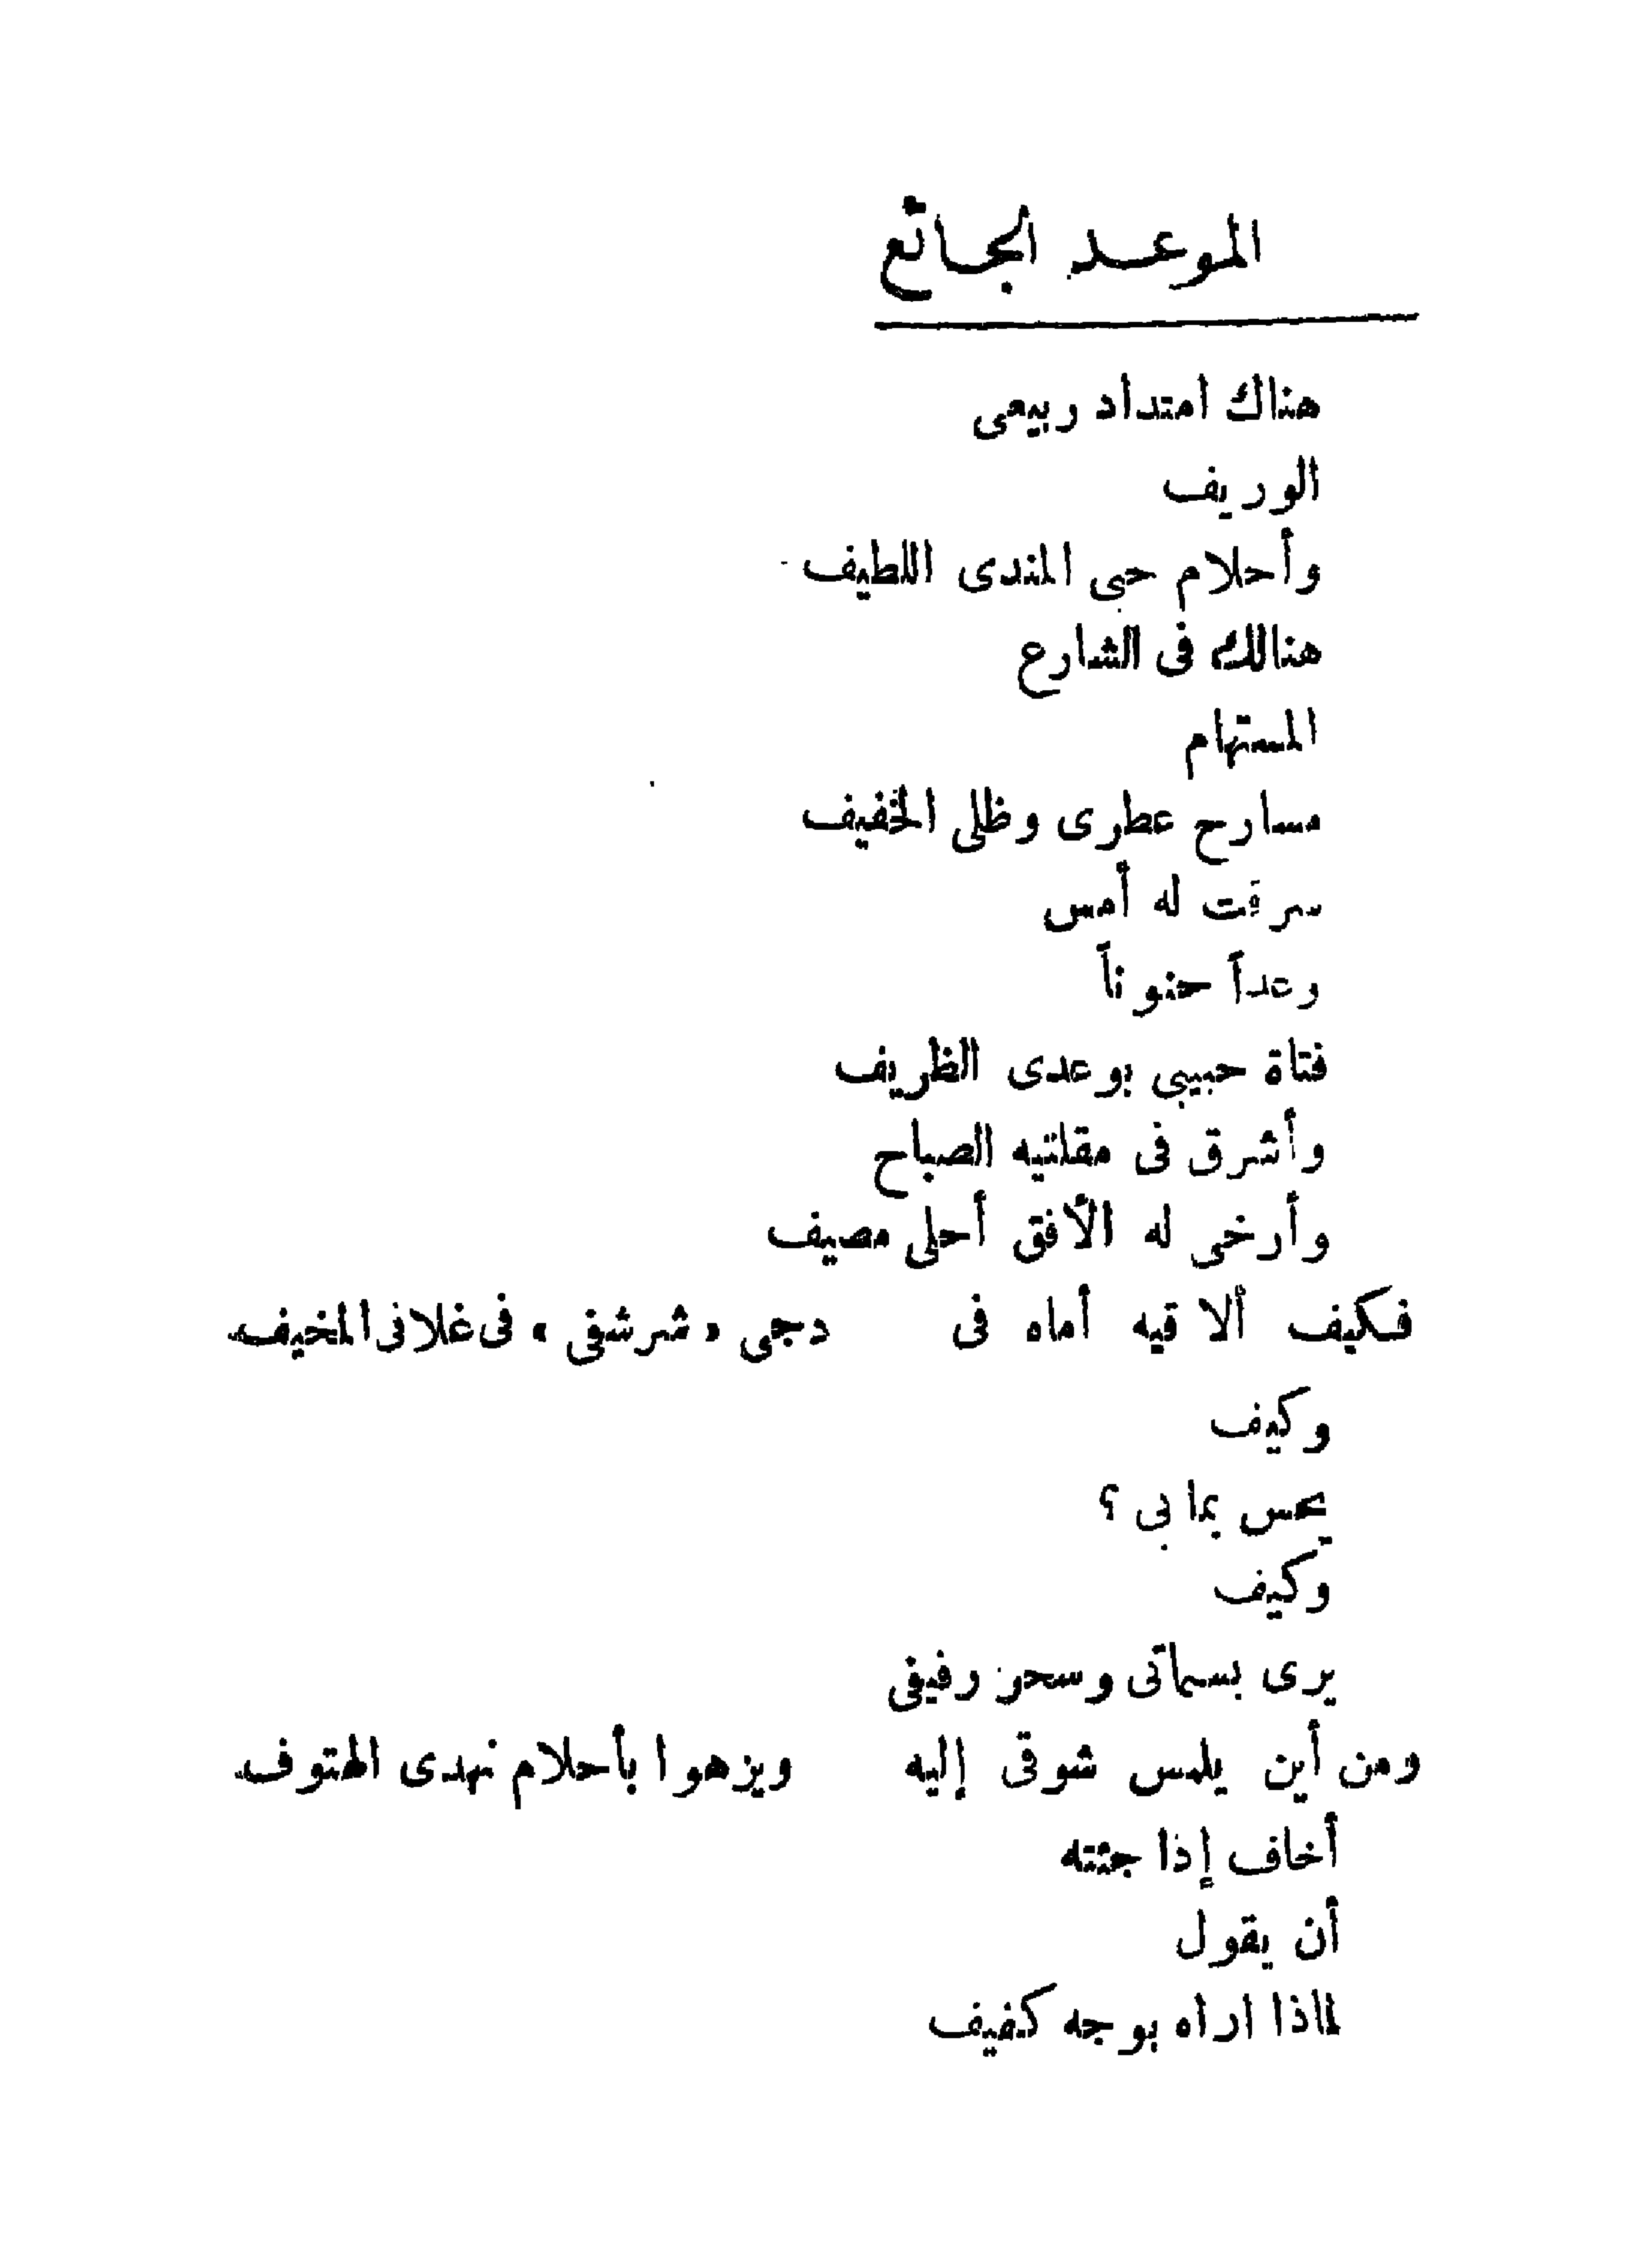 الموعد الجائع
هناك امتداد ربيعى
الوريف
وأحلام حبى المندى اللطيف
هنالك فى الشارع
المستهام
مسارح عطرى وظلى الخفيف
سرقت له أمس
وعداً حنوناً
فتاة حبيبى بوعدى الظريف
وأشرق فى مقلتيه الصباح
وأرخى له الأفق أحلى مصيف
فكيف ألاقيه أماه فى دجى «شرشفى» فى غلافى المخيف
وكيف
يحس بما بى ؟
وكيف
يرى بسماتى وسحر رفيفى
ومن أين يلمس شوقى إليه ويزهوا بأحلام نهدى الهتوف
أخاف إذا جئته
أن يقول
لماذا اراه بوجه كفيف